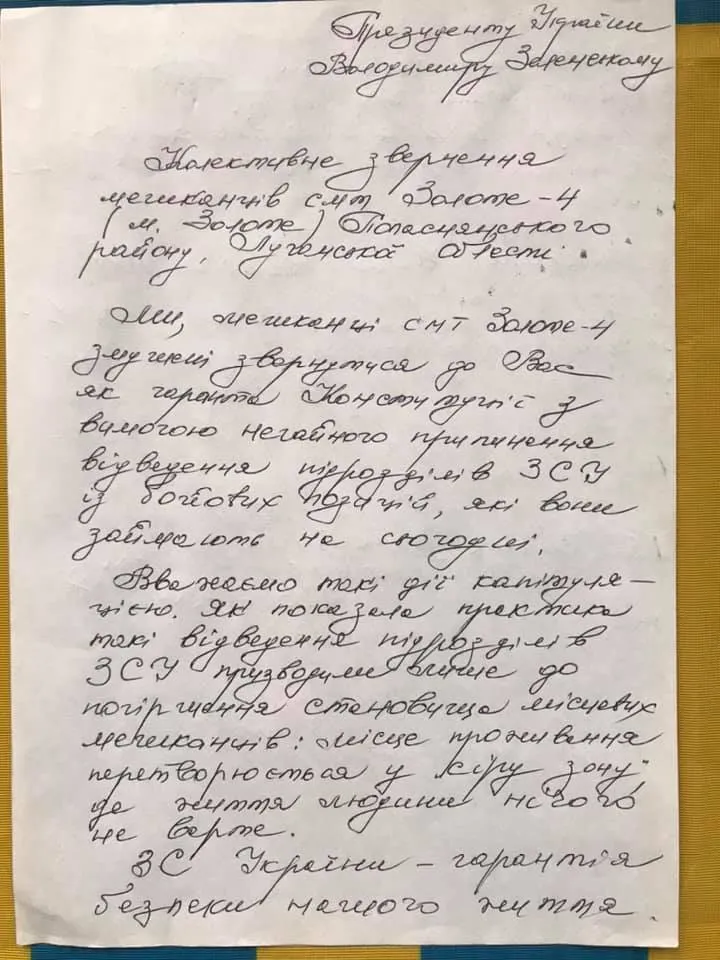 Президенту України
Володимиру Зеленському
Колективне звернення
мешканців смт Золоте-4
(м. Золоте) Попаснянського
району, Луганської області.
Ми, мешканці смт Золоте-4
змушені звернутися до Вас
як гаранта Конституції з
вимогою негайного припинення
відведення підрозділів ЗСУ
із бойових позицій, які вони
займають на сьогодні.
Вважаємо такі дії капітуля-
цією. Як показала практика
такі відведення підрозділів
ЗСУ призводили лише до
погіршення становища місцевих
мешканців: місце проживання
перетворюється у "сіру зону"
де життя людини нічого
не варте.
ЗС України - гарантія
безпеки нашого життя.